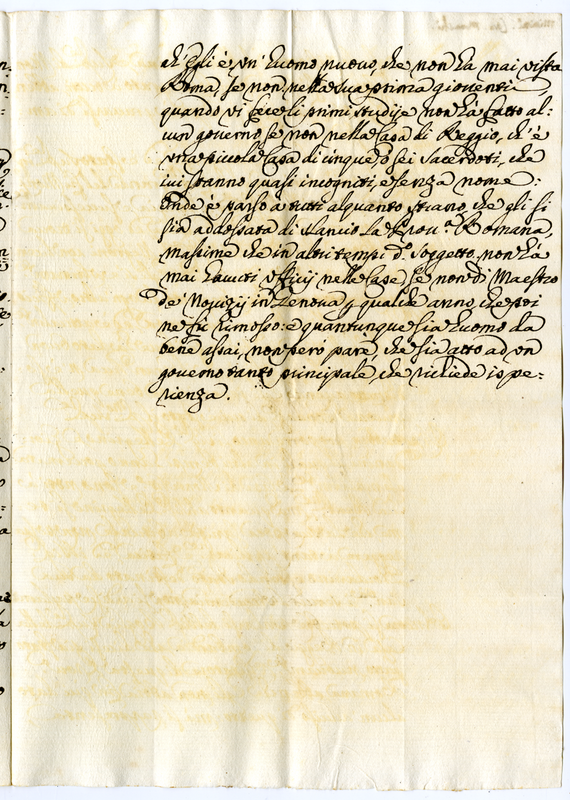 ch'Egli è un'huomo nuouo, che non ha mai vista
Roma, se non nella sua prima giouentù,
quando vi fece li primi studij e non ha fatto al:
cun gouerno se non nella Casa di Reggio, ch'è
una piccola Casa di cinque, ò sei Sacerdoti, che
iui stanno quasi incogniti, e senza nome:
Onde è parso a tutti alquanto strano, che gli si
sia addossata di slancio la Prou.ª Romana,
massime che in altri tempi d.º Soggetto non ha
mai hauuti Officij nelle Case, se non di Maestro
de Nouizij in Genoua p qualche anno, che poi
ne fù rimosso: e quantunque sia huomo da
bene assai, non però pare, che sia atto ad un
gouerno tanto principale, che richiede ispe:
rienza.